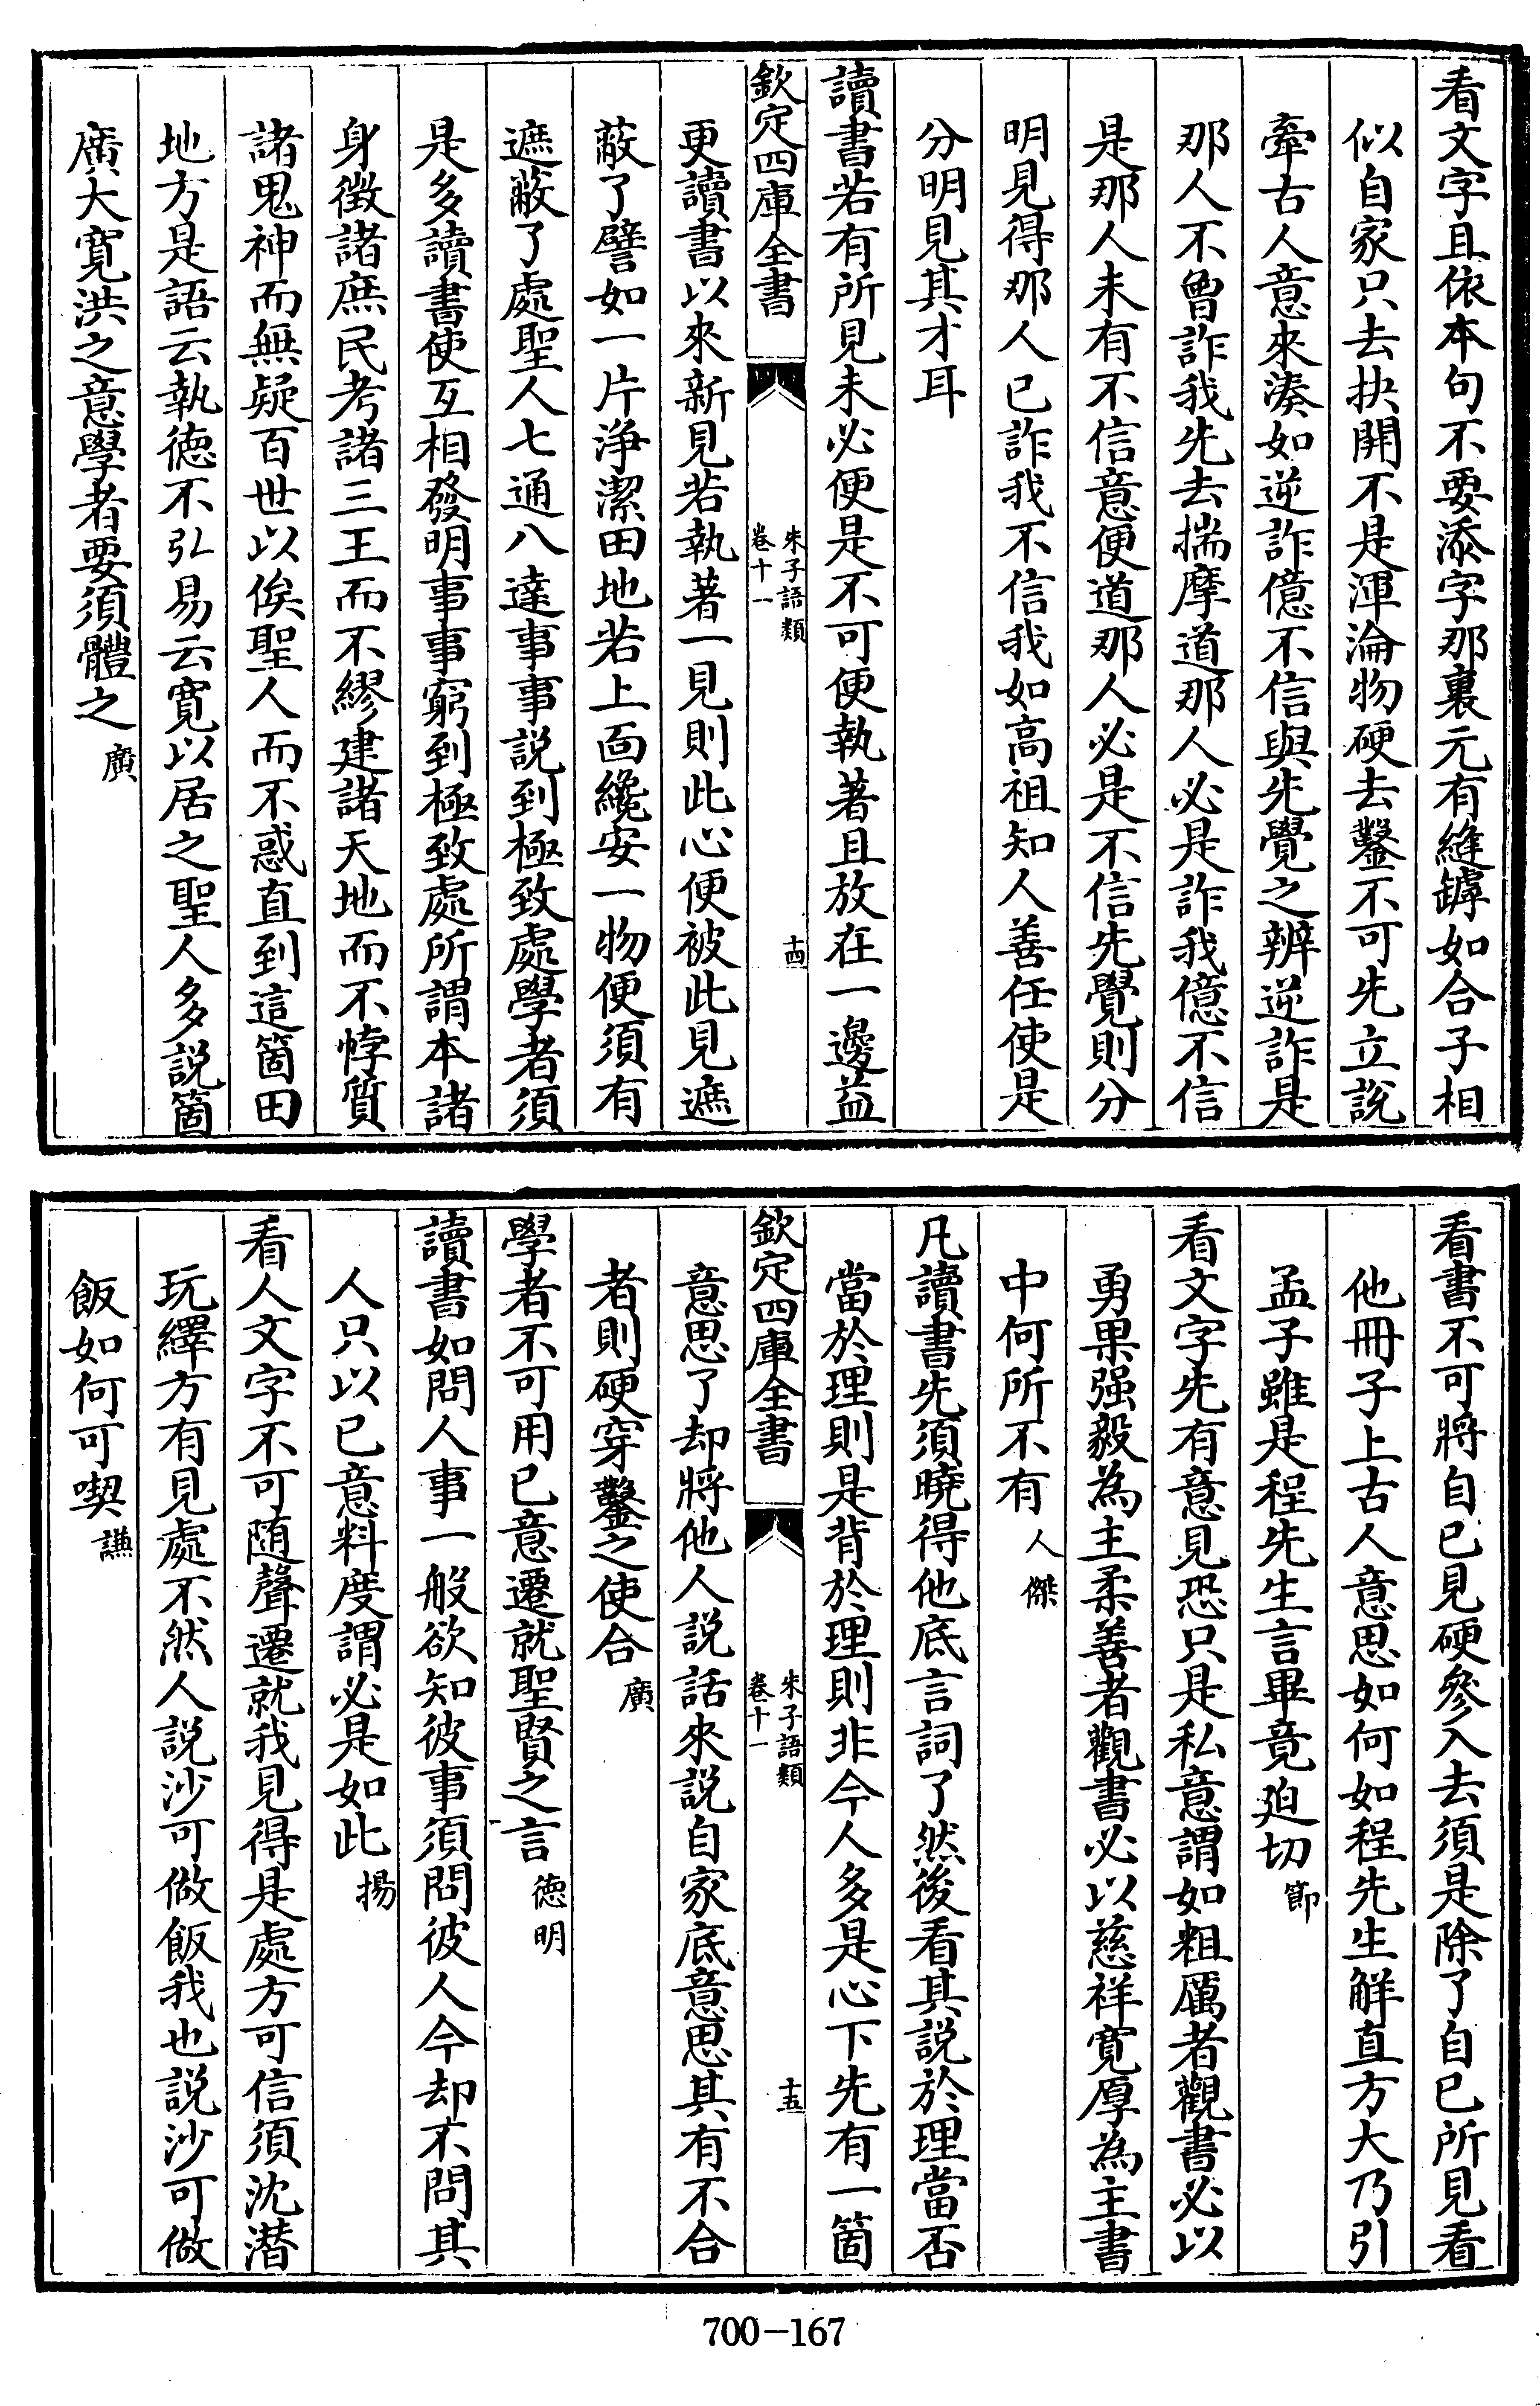 看文字且依本句不要添字那裏元有縫罅如合子相
似自家只去抉開不是渾淪物硬去鑿不可先立說
牽古人意來湊如逆詐億不信與先覺之辨逆詐是
那人不曾詐我先去揣摩道那人必是詐我億不信
是那人未有不信意便道那人必是不信先覺則分
明見得那人已詐我不信我如高祖知人善任使是
分明見其才耳
讀書若有所見未必便是不可便執著且放在一邊益
欽定四庫全書
朱子語類
卷十一
十四
更讀書以來新見若執著一見則此心便被此見遮
蔽了譬如一片浄潔田地若上面纔安一物便須有
遮蔽了處聖人七通八達事事説到極致處學者須
是多讀書使互相發明事事窮到極致處所謂本諸
身徴諸庶民考諸三王而不繆建諸天地而不悖質
諸鬼神而無疑百世以俟聖人而不惑直到這箇田
地方是語云執徳不弘易云寛以居之聖人多説箇
廣大寛洪之意學者要須體之 廣
看書不可將自已見硬參入去須是除了自已所見看
他冊子上古人意思如何如程先生解直方大乃引
孟子雖是程先生言畢竟廹切 節
看文字先有意見恐只是私意謂如粗厲者觀書必以
勇果强毅為主柔善者觀書必以慈祥寛厚為主書
中何所不有 人傑
凡讀書先須曉得他底言詞了然後看其説於理當否
當於理則是背於理則非今人多是心下先有一箇
欽定四庫全書
朱子語類
卷十一
十五
意思了却將他人説話來説自家底意思其有不合
者則硬穿鑿之使合 廣
學者不可用已意遷就聖賢之言 徳明
讀書如問人事一般欲知彼事須問彼人今却不問其
人只以已意料度謂必是如此 揚
看人文字不可随聲遷就我見得是處方可信須沈潛
玩繹方有見處不然人説沙可做飯我也説沙可做
飯如何可喫 謙
700-167